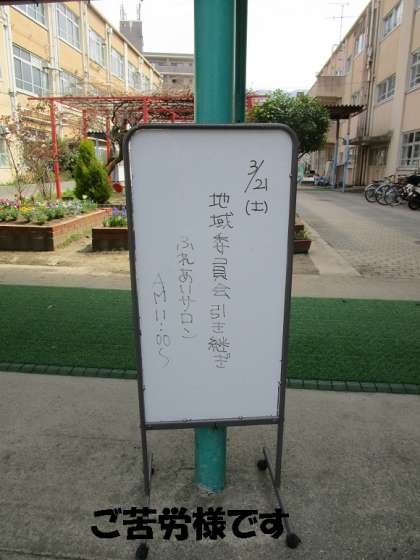 3/21
(土)
地域委員会引き継ぎ
ふれあいサロン
AM11:00〜
ご苦労様です